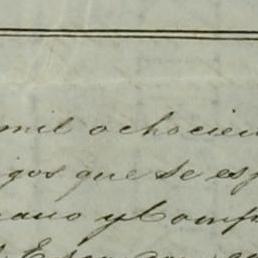 mil ochocien
igos que se esp
ano y Comp